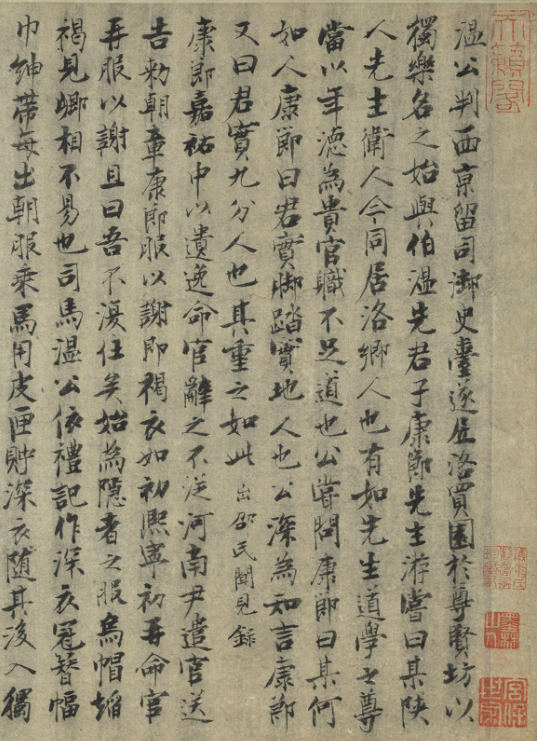 溫公判西京留司御史臺遂居洛買園於尊賢坊以
獨樂名之始與伯溫先君子康節先生游嘗曰某陝
人先生衛人今同居洛鄉人也有如先生道學之尊
當以年德為貴官職不足道也公嘗問康節曰某何
如人康節曰君實脚踏實地人也公深為知言康節
又曰君實九分人也其重之如此出邵氏聞見錄
康節嘉祐中以遺逸命官辭之不從河南尹遣官送
告勑朝章康節服以謝即褐衣如初熙寧初再命官
再服以謝且曰吾不復仕矣始為隱者之服烏帽縚
褐見卿相不易也司馬溫公依禮記作深衣冠簪幅
巾紳帶每出朝服乘馬用皮匣貯深衣隨其後入獨
天籟閣
宮保